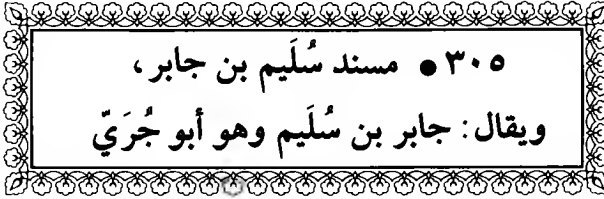 ٣٠٥ ● مسند سُلَيم بن جابر،
ويقال: جابر بن سُلَيم وهو أبو جُرَيّ